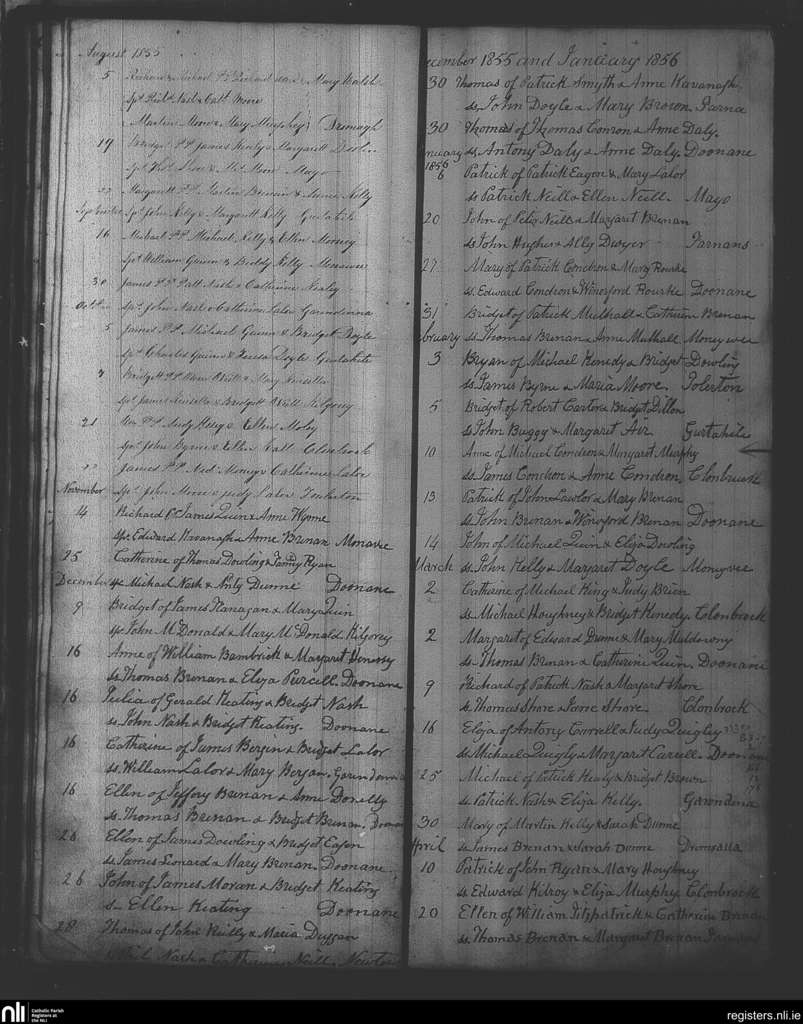 August 1855
5 Richard & Michael P.P. Richard and Mary Walsh
Sps Patk Nash & Cath Moore
Martin Moore & Mary Murphy Dromagh
19 Bridget P.P. James Healy & Margarett
Mayo
22 Margarett P.P. Martin Brenan & Anne Kelly
September Sps John Kelly & Margarett Kelly Gurtahile
16 Michael P.P. Michael Kelly & Ellen
Sps William Quinn & Biddy Kelly Monavee
30 James P.P. Patt Nash & Catherine Healy
October Sps John Nash & Catherine Lalor Garrindenna
5 James P.P. Michael Quinn & Bridget Doyle
Sps Charles Quinn & Teresa Doyle Gurtahile
7 Bridgett P.P. Neill & Mary Kinsella
Sps James Kinsella & Bridgett Neill Kilgorey
21 Wm P.P. Judy Kelly & Ellen
Sps John Byrne & Ellen Catt Clonbrock
22 James P.P. Ned Money & Catherine Lalor
November Sps John Moore & Judy Lalor Tolerton
14 Richard of James Quin & Anne Wynne
Sps Edward Kavanagh & Anne Brenan Monavee
25 Catherine of Thomas Dowling & Fanny Ryan
December Ss Michael Nash & Anty Dunne Doonane
9 Bridget of James Flanagan & Mary Quin
Ss John McDonald & Mary McDonald Kilgorey
16 Anne of William Bambrick & Margaret Henessy
Ss Thomas Brenan & Eliza Purcell. Doonane
16 Julia of Gerald Keating & Bridget Nash
Ss John Nash & Bridget Keating. Doonane
16 Catherine of James Bergin & Bridget Lalor
Ss. William Lalor & Mary Bergan. Garindenna
16 Ellen of Jeffery Brenan & Anne Donelly
Ss. Thomas Brenan & Bridget Brenan. Doonane
26 Ellen of James Dowling & Bridget Eagen
Ss James Leonard & Mary Brenan. Doonane
26 John of James Moran & Bridget Keating
S. Ellen Keating Doonane
28 Thomas of John Reilly & Maria Duggan
Nash & Catherine Neill. Newtow
ecember 1855 and January 1856
30 Thomas of Patrick Smyth & Anne Kavanagh
Ss. John Doyle & Mary Brown. Farna
30 Thomas of Thomas Conron & Anne Daly.
anuary Ss. Antony Daly & Anne Daly. Doonane
1856
6 Patrick of Patrick Eagen & Mary Lalor
Ss Patrick Neill & Ellen Neill. Mayo
20 John of Peter Neill & Margaret Brenan
Ss John Hughes & Ally Dwyer Farnans
27 Mary of Patrick Condron & Mary Rourke
Ss. Edward Condron & Winesford Rourke Doonane
31 Bridget of Patrick Mulhall & Catherine Brenan
bruary Ss Thomas Brenan & Anne Mulhall Moneyvee
3 Bryan of Michael Kenedy & Bridget Dowling
Ss. James Byrne & Maria Moore. Tolerton
5 Bridget of Robert Carter & Bridget Dillon
Ss John Buggy & Margaret Air. Gurtahile
10 Anne of Michael Condron & Margaret Murphy
Ss. James Condron & Anne Condron. Clonbrock
13 Patrick of John Lawlor & Mary Brenan
Ss John Brenan & Winesford Brenan Doonane
14 John of Michael Quin & Eliza Dowling
March Ss. John Kelly & Margaret Doyle Moneyvee
2 Catherine of Michael King & Judy Brien
Ss. Michael Houghney & Bridget Kenedy. Clonbrock
2 Margaret of Edward Dunne & Mary Muldowny
Ss. Thomas Brenan & Catherine Quin. Doonane
9 Richard of Patrick Nash & Margaret Shore
Ss Thomas Shore & Jane Shore. Clonbrock
16 Eliza of Antony Correll & Judy Quigley
Ss. Michael Quigly & Margaret Carrell. Doonane
25 Michael of Patrick Healy & Bridget Brown
Ss. Patrick Nash & Eliza Kelly. Garondena
30 Mary of Martin Kelly & Sarah Dunne
April Ss James Brenan & Sarah Dunne Dromgalla
10 Patrick of John Ryan & Mary Houghney
Ss Edward Kilroy & Eliza Murphy. Clonbrock
20 Ellen of William Fitzpatrick & Catherine Brenan
Ss. Thomas Brenan & Margaret Brenan
nli
Catholic Parish
Registers at
the NLI
registers.nli.ie